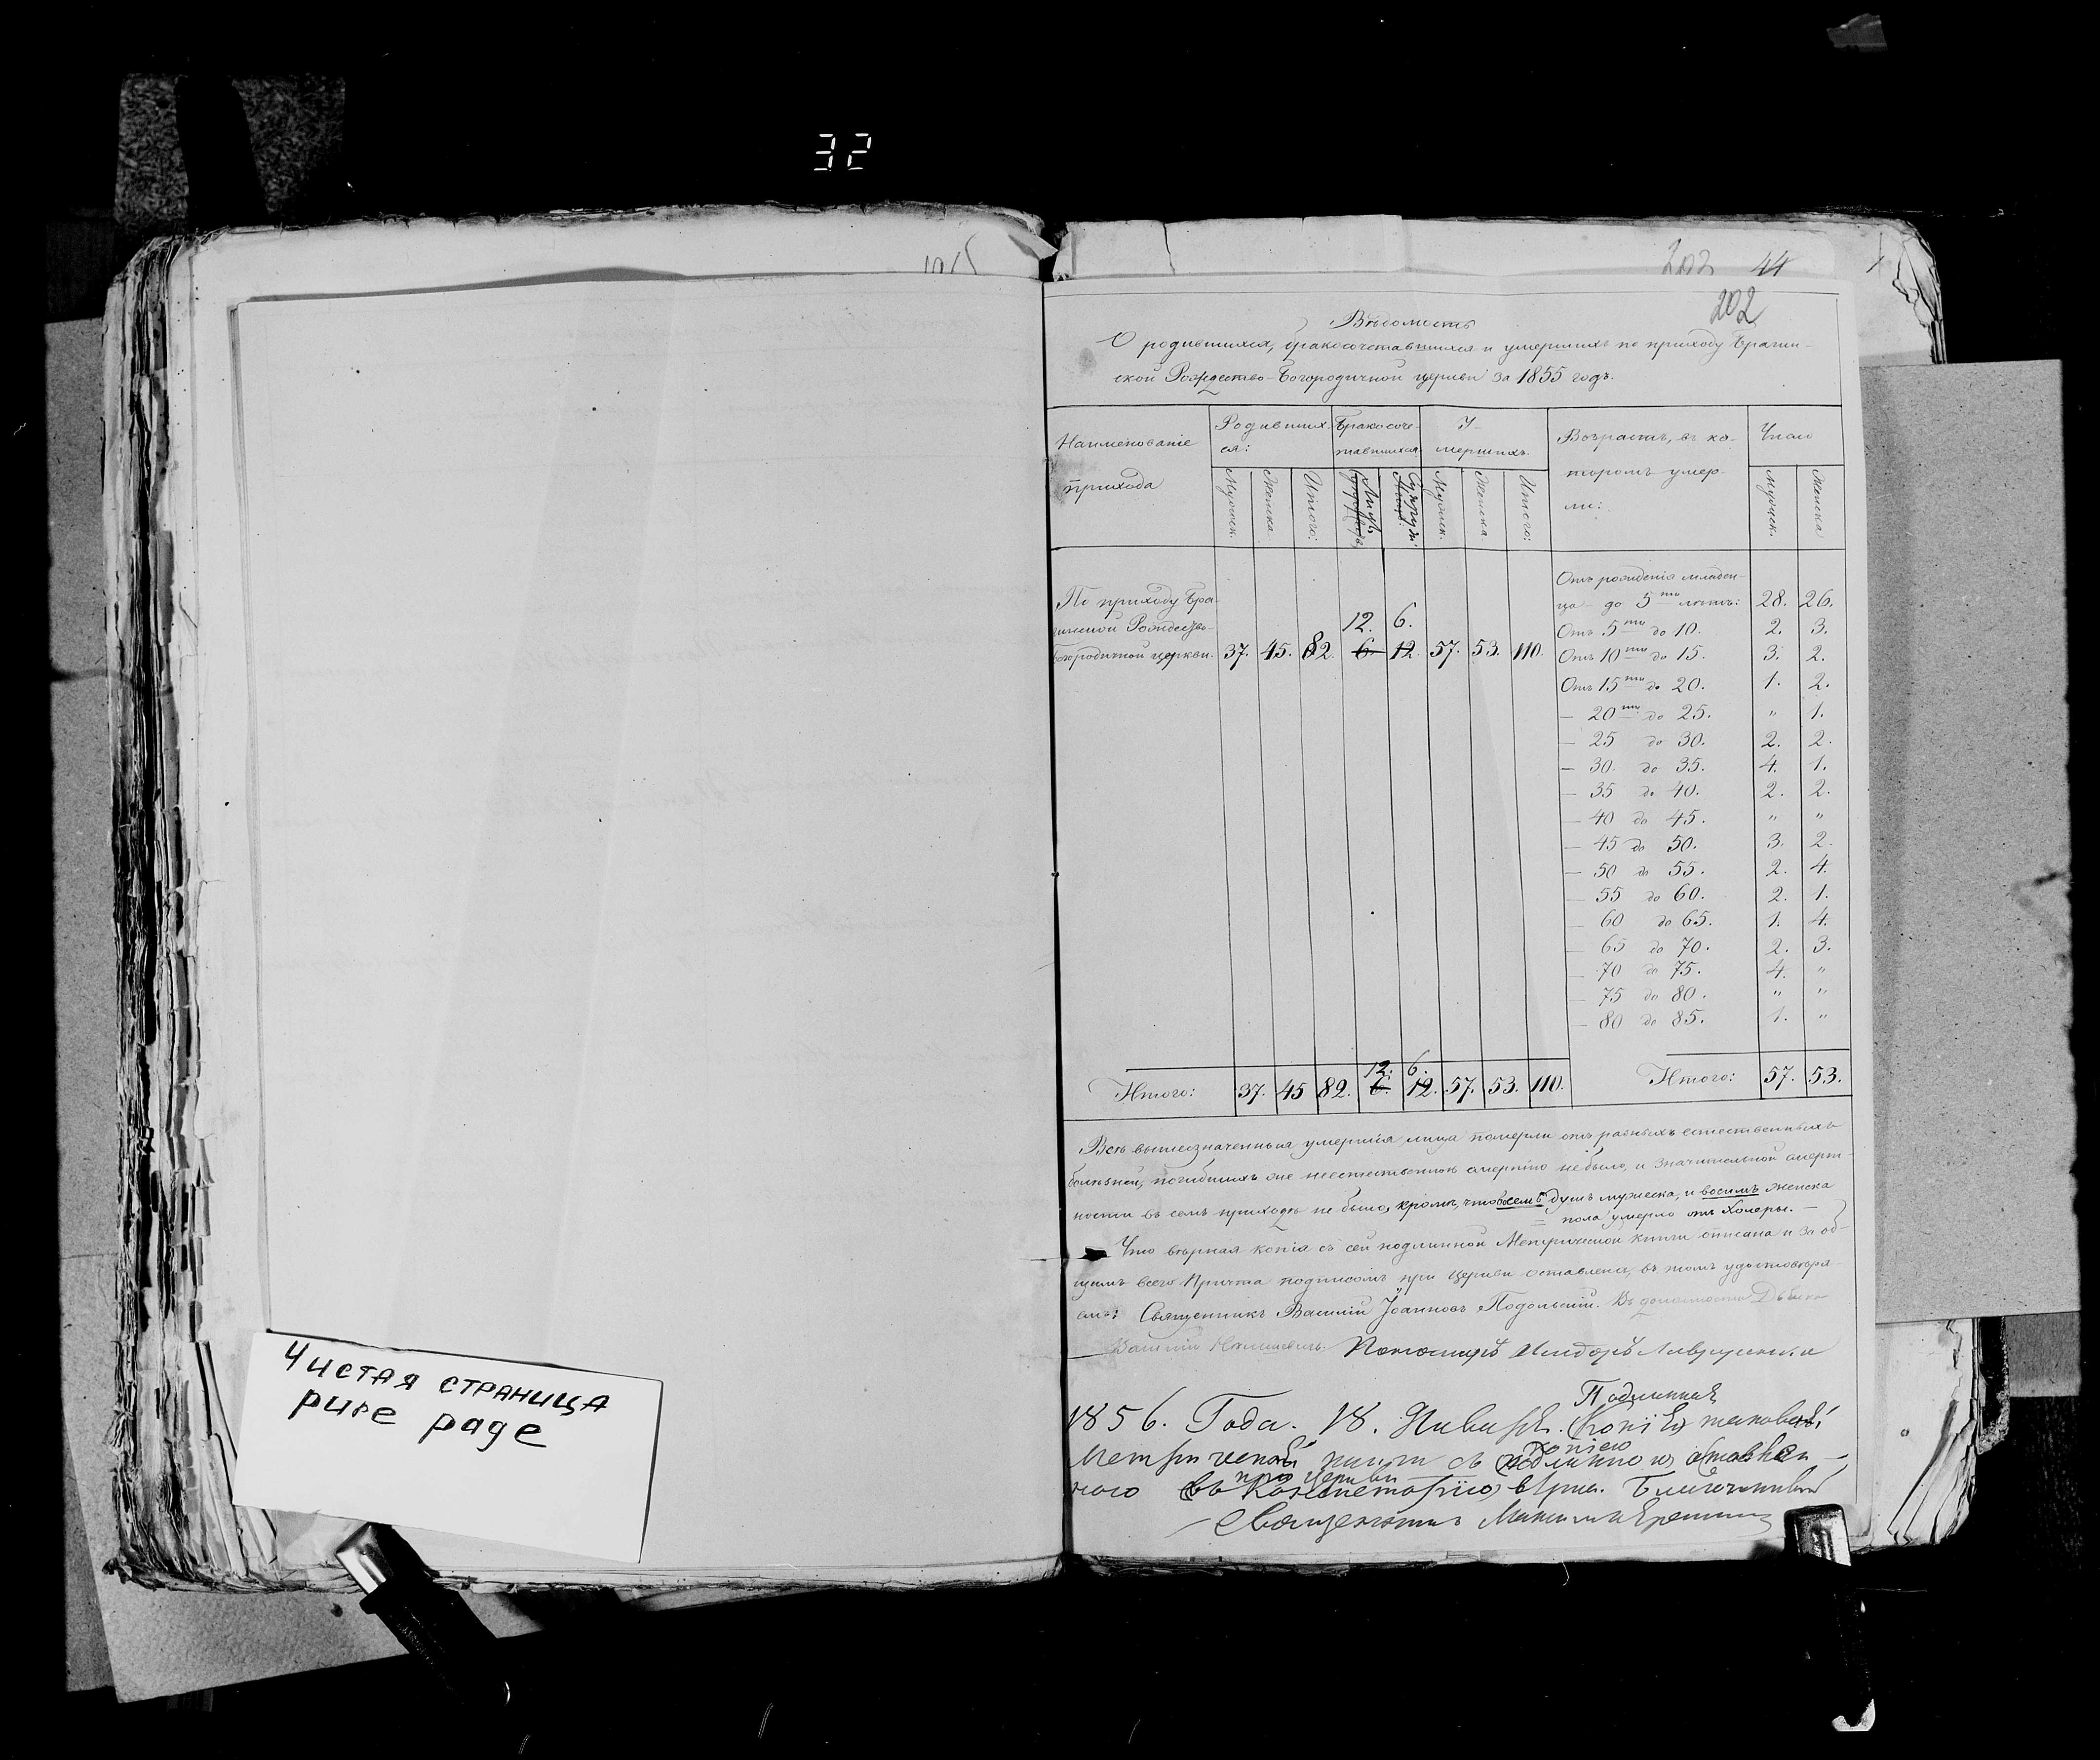 32
202 44
202
Вѣдомость
О родившихся, бракосочетавшихся и умершихъ по приходу Брагин-
ской Рождество-Богородичной церкви за 1855 годъ.
Наименованіе прихода
Родивших-ся:
Бракосоче-тавшихся
У-мершихъ.
Возрастъ, въ ко-торомъ умер-ли:
Число
Мужеск. Женска Итого: Лицъ Супруж: Мужеск. Женска Итого: Мужеск. Женска
По приходу Бра-
гинской Рождество-
Богородичной церкви. 37. 45. 82. 6. 12. 57. 53. 110.
12. 6.
Отъ рожденія младен-
ца до 5ти лѣтъ: 28. 26.
Отъ 5ти до 10. 2. 3.
Отъ 10ти до 15. 3. 2.
Отъ 15ти до 20. 1. 2.
— 20ти до 25. " 1.
— 25 до 30. 2. 2.
— 30 до 35. 4. 1.
— 35 до 40. 2. 2.
— 40 до 45. " "
— 45 до 50. 3. 2.
— 50 до 55. 2. 4.
— 55 до 60. 2. 1.
— 60 до 65. 1. 4.
— 65 до 70. 2. 3.
— 70 до 75. 4. "
— 75 до 80. " "
— 80 до 85. 1. "
12. 6.
Итого: 37. 45 82. 6. 12. 57. 53. 110. Итого: 57. 53.
Всѣ вышеозначенныя умершія лица померли отъ разныхъ естественныхъ
болѣзней, погибшихъ же неестественною смертію не было, и значительной смерт-
ности въ семъ приходѣ не было, кромѣ, что восемь душъ мужеска, и восимъ женска
пола умерло отъ холеры. —
Что вѣрная копія съ сей подлинной Метрической книги списана и за об-
щимъ всего Причта подписомъ при церкви оставлена, въ томъ удостовѣря-
емъ: Священникъ Василій Іоанновъ Подольскій. Въ должности Дьячка
Василій Пономарь Исидоръ
Подлинная
1856. Года. 18. Января. Копія таковой
Метрической книги съ подлинною оставлен-
копіею
ного въ Консисторію вѣрна. Благочинный
при церкви
Священникъ Максимъ
Чистая страница
pure page